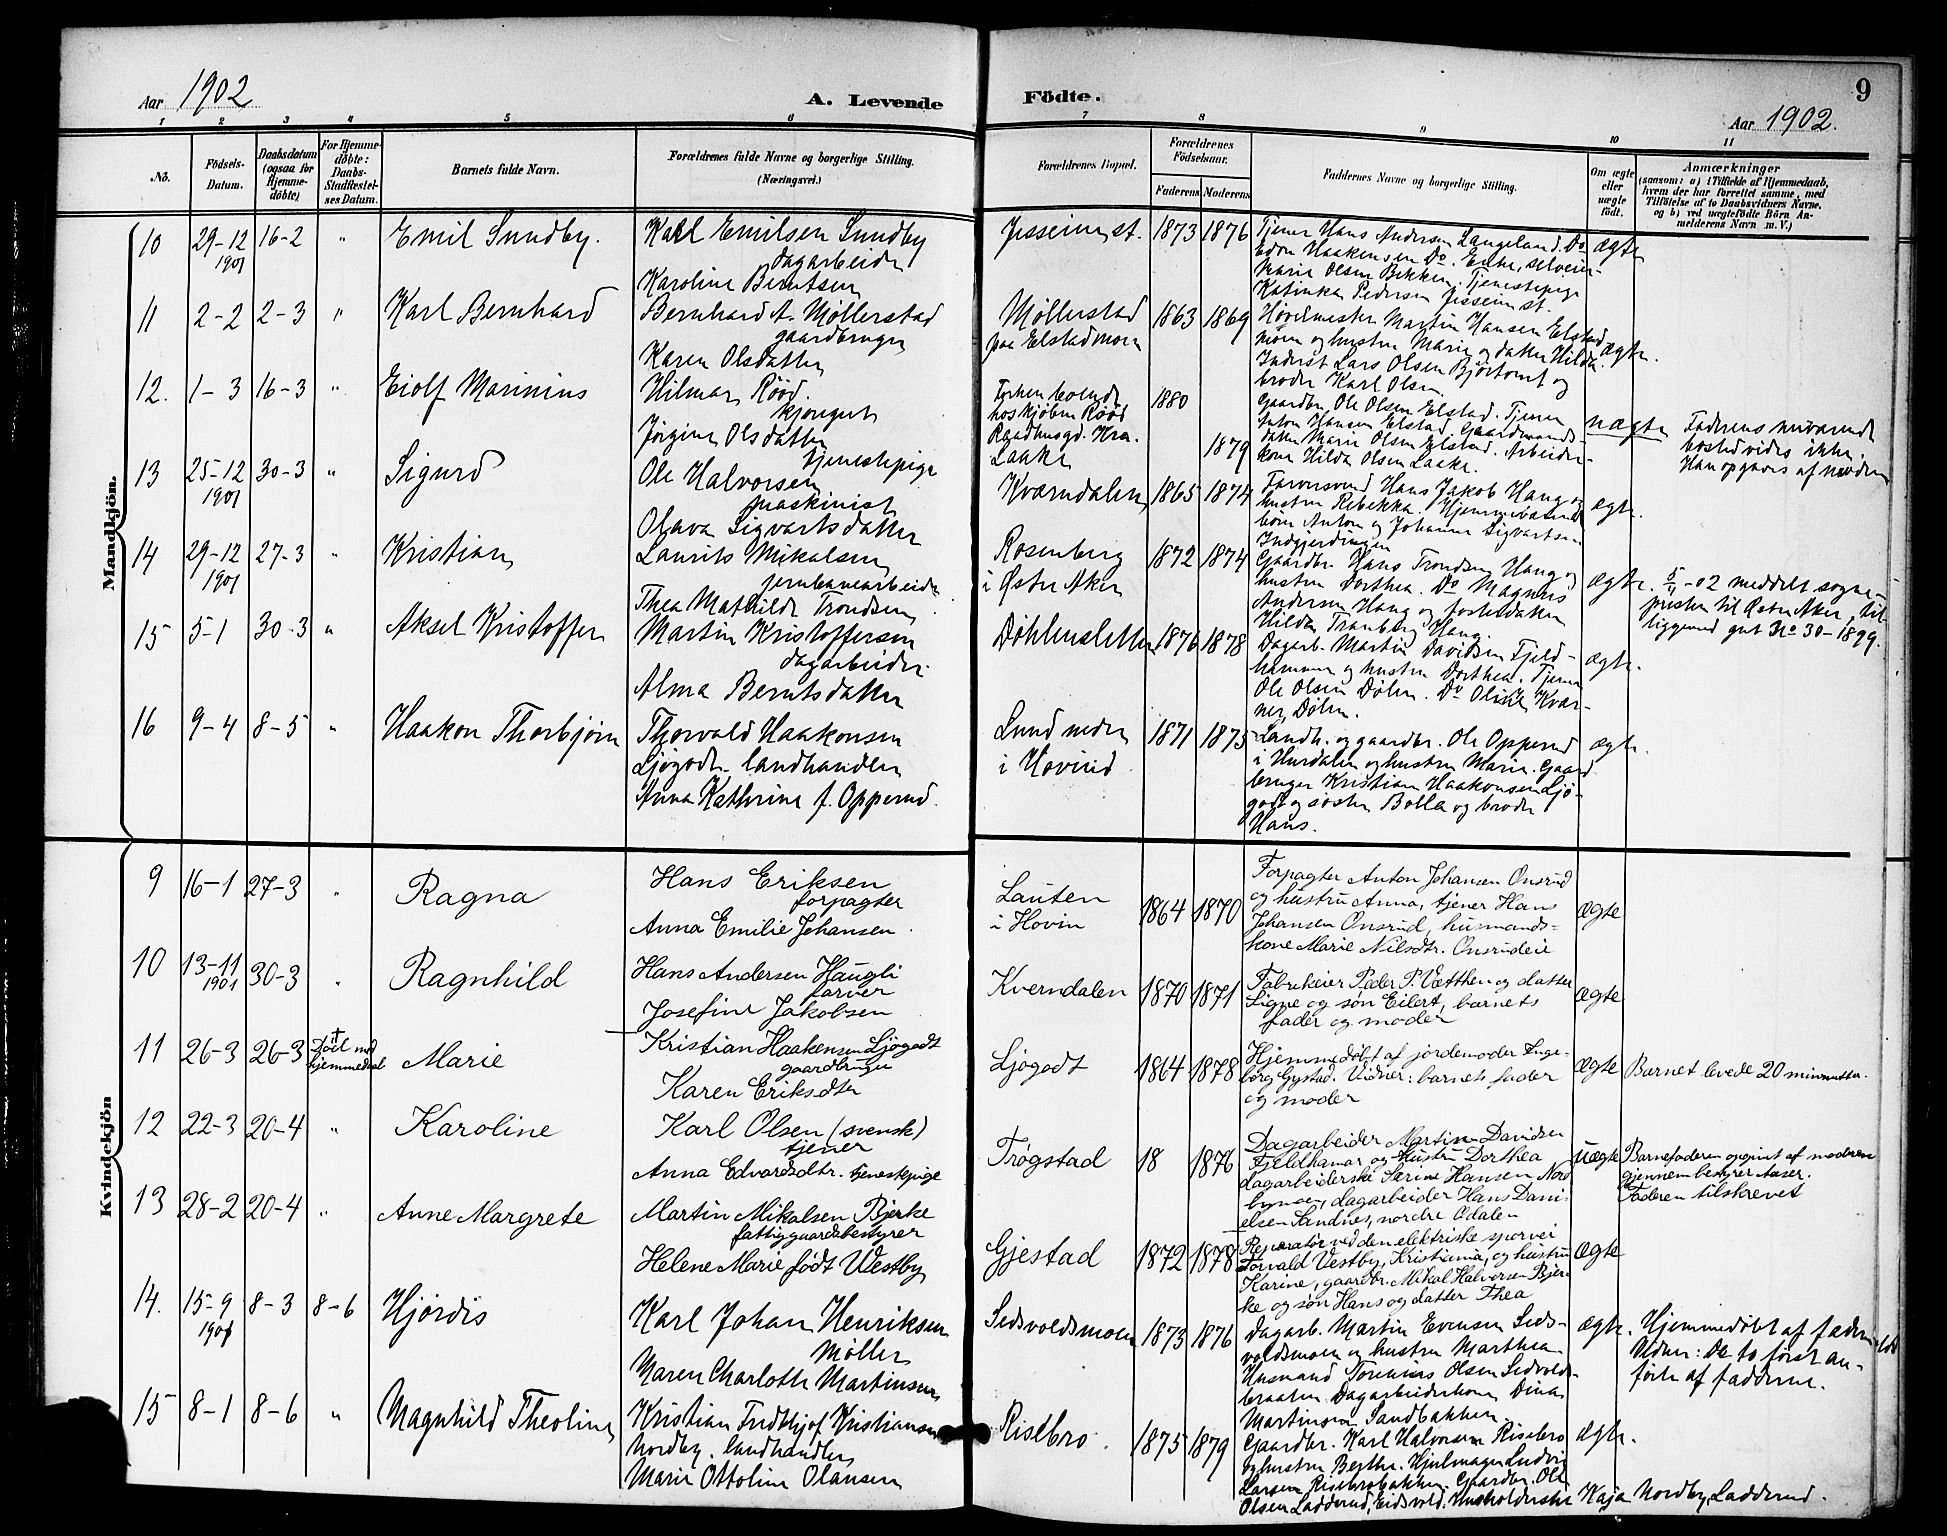 Aar 1902
A. Levende
Födte.
9
Aar 1902.
1 2 3 4 5 6 7 8 9 10 11
No.
Födsels-
Datum.
Daabsdatum
(ogsaa for
Hjemme-
döbte)
For Hjemme-
døbte:
Daabs-
Stadfæstel-
ses Datum.
Barnets fulde Navn.
Forældrenes fulde Navne og borgerlige Stilling.
(Næringsvei.)
Forældrenes Bopæl.
Forældrenes
Födselsaar.
Faderens
Moderens
Faddernes Navne og borgerlige Stilling.
Om ægte
eller
uægte
födt.
Anmærkninger
(saasom: a) i Tilfælde af Hjemmedaab,
hvem der har forrettet samme, med
Tilföielse af to Daabsvidners Navne,
og b) ved uægtefödte Börn An-
melderens Navn m. V.)
Mandkjön.
10 29-12 16-2 " Emil Sundby.
1901
Karl Emilsen Sundby
dagarbeider
Karoline Berntsen
Jesseim st. 1873 1876
Tjener Hans Andersen Langeland. Do
Edvn Haakensen Do. Enke, selveier-
Marie Olsen Bekken. Tjenestepige
Katinka Pedersen Jesseim st.
ægte
11 2-2 2-3 " Karl Bernhard
Bernhard A. Møllerstad
gaardbruger
Karen Olsdatter
Møllerstad
paa Elstadmoen
1863 1869
Høvlmester Martin Hansen Elstad
moen og hustru Marie og datter Hilda.
Inderst Lars Olsen Bjørtomt og
broder Karl Olsen
ægte.
12. 1-3 16-3 " Eiolf Marinius
Hilmar Rööd.
Jørgine Olsdatter
tjenestepige
hos kjøbm Rööd
Raadhusgd. Kra.
Laake
1880
1879
Gaardbr. Ole Olsen Elstad. Tjener
Anton Hansen Elstad. Gaardmands-
datter Marie Olsen Elstad. Arbeider-
kone Hilda Olsen Laake.
uægte
Faderens nuværende
bosted vides ikke.
Han opgaves af moderen
13 25-12 30-3 " Sigurd
1901
Ole Halvorsen
maskinist
Olava Sigvartsdatter
Kværndalen 1865 1874
Farversvend Hans Jakob Haug og
hustru Rebekka. Hjemmeværende
børn Anton og Johanne Sigvartsen
Indgjerdingen
ægte.
14 29-12 27-3 " Kristian
1901
Laurits Mikalsen
jernbanearbeider
Thea Mathilde Trondsen
Rosenberg
i Østre Aker
1872 1874
Gaardbr. Hans Trondsen Haug og
hustru Dorthea. Do Magnus
Andersen Haug og fosterdatter
Hilda Tranberg Haug.
ægte.
5/4-02 meddelt sogne-
presten til Østre Aker, til-
liggende gut No 30-1899.
15 5-1 30-3 " Aksel Kristoffer
Martin Kristoffersen
dagarbeider.
Alma Berntsdatter
Døhlensletten 1876 1878
Dagarb. Martin Davidsen Fjeld-
hammer og hustru Dorthea. Tjener
Ole Olsen Dølen. Do Oline Kvær-
ner, Dølen.
ægte.
16 9-4 8-5 " Haakon Thorbjørn
Thorvald Haakonsen
Ljøgodt landhandler
Anna Kathrine f. Opperud.
Lund nedre
i Hovind
1871 1875
Landh. og gaardbr. Ole Opperud
i Hurdalen og hustru Marie. Gaard
bruger Kristian Haakonsen Ljø-
godt og søster Bolla og broder
Hans.
ægte.
Kvindekjön
9 16-1 27-3 " Ragna
Hans Eriksen
forpagter
Anna Emilie Johansen.
Lauten
i Hovin
1864 1870
Forpagter Anton Johansen Onsrud
og hustru Anna, tjener Hans
Johansen Onsrud, husmands-
kone Marie Nilsdtr. Onsrudeie
ægte
10 13-11 30-3 " Ragnhild
1901
Hans Andersen Haugli
farver
Josefine Jakobsen
Kverndalen 1870 1871
Fabrikeier Peder P. Vætthen og datter
Signe og søn Eilert, barnets
fader og moder
ægte
11 26-3 26-3 † Døet med hjemmedaab Marie
Kristian Haakensen Ljøgodt
gaardbruger
Karen Eriksdtr
Ljøgodt 1864 1878
Hjemmedøbt af jordemoder Inge-
borg Gystad. Vidner: barnets fader
og moder
ægte
Barnet levede 20 minutter.
12 22-3 20-4 " Karoline
Karl Olsen (svensk)
tjener
Anna Edvardsdtr. tjenestepige
Trøgstad 18 1876
Dagarbeider Martin Davidsen
Fjeldhamar og hustru Dorthea
dagarbeiderske Serine Hansen Nord
bymoen, dagarbeider Hans Dani-
elsen Sandnes, nordre Odalen
uægte
Barnefaderen opgivet af moderen
gjennem bestyrer Aaser.
Faderen tilskrevet
13 28-2 20-4 " Anne Margrete
Martin Mikalsen Bjerke
fattiggaardsbestyrer
Helene Marie født Westby
Gjestad 1872 1878
Reparatør ved den elektriske sporvei
Torvald Vestby, Kristiania, og hustru
Karine, gaardbr. Mikal Halvorsen Bjer-
ke og søn Hans og datter Thea
ægte
14. 15-9 8-3 8-6 Hjørdis
1901
Karl Johan Henriksen
Møller
Maren Charlotte Martinsen
Sedsvoldsmoen 1873 1876
Dagarb. Martin Evensen Seds-
voldsmoen og hustru Marthea
Husmand Torinius Olsen Sedvolds-
braaten. Dagarbeiderkone Dina
Martinsen Sandbakken
ægte.
Hjemmedøbt af faderen
Vidner: De to først an-
førte af fadderne.
15 8-1 8-6 " Magnhild Theoline
Kristian Fridthjof Kristiansen
Nordby. landhandler
Marie Ottoline Olausen
Risebro. 1875 1879
Gaardbr. Karl Halvorsen Risebro
og hustru Berthe. Hjulmager Ludvig
Larsen Risebrobakken. Gaardbr. Ole
Olsen Ladderud, Eidsvold. Husholderske Kaja Nordby, Ladderud.
ægte.